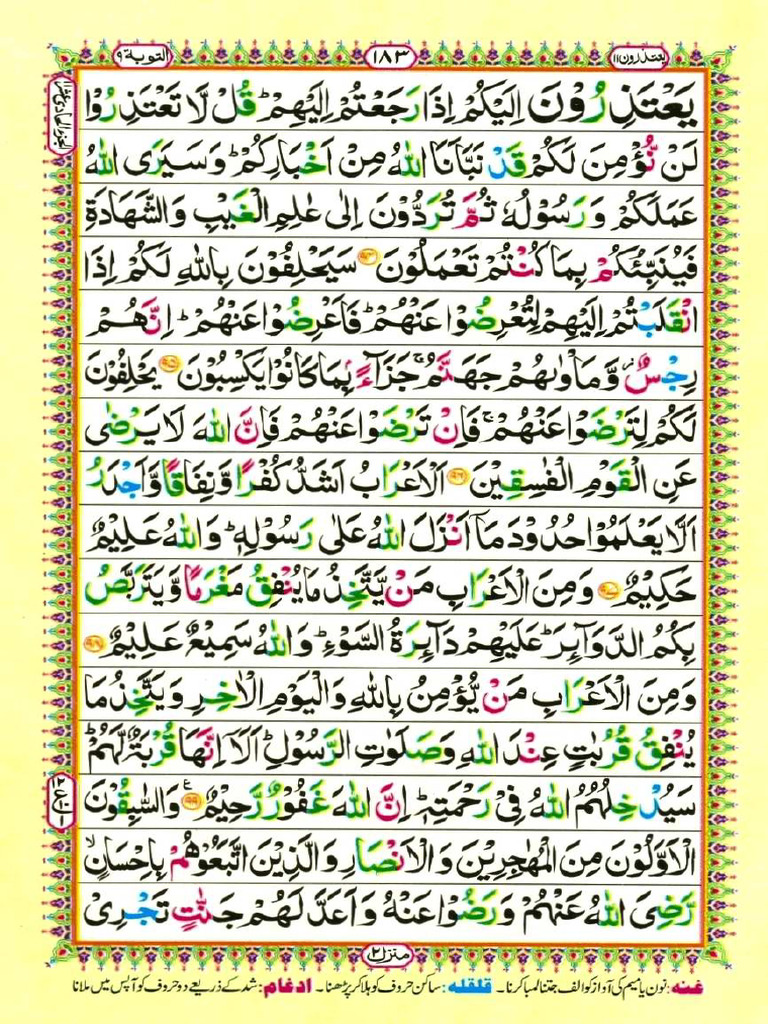 یعتذرون ۱۱
۱۸۳
التوبة ۹
الجزء الحادی عشر
یَعْتَذِرُوْنَ اِلَیْكُمْ اِذَا رَجَعْتُمْ اِلَیْهِمْ ؕ قُلْ لَّا تَعْتَذِرُوْا
لَنْ نُّؤْمِنَ لَكُمْ قَدْ نَبَّاَنَا اللّٰهُ مِنْ اَخْبَارِكُمْ ؕ وَ سَیَرَی اللّٰهُ
عَمَلَكُمْ وَ رَسُوْلُهٗ ثُمَّ تُرَدُّوْنَ اِلٰی عٰلِمِ الْغَیْبِ وَ الشَّهَادَةِ
فَیُنَبِّئُكُمْ بِمَا كُنْتُمْ تَعْمَلُوْنَ ﴿۹۴﴾ سَیَحْلِفُوْنَ بِاللّٰهِ لَكُمْ اِذَا
انْقَلَبْتُمْ اِلَیْهِمْ لِتُعْرِضُوْا عَنْهُمْ ؕ فَاَعْرِضُوْا عَنْهُمْ ؕ اِنَّهُمْ
رِجْسٌ ؗ وَّ مَاْوٰىهُمْ جَهَنَّمُ ۚ جَزَآءًۢ بِمَا كَانُوْا یَكْسِبُوْنَ ﴿۹۵﴾ یَحْلِفُوْنَ
لَكُمْ لِتَرْضَوْا عَنْهُمْ ۚ فَاِنْ تَرْضَوْا عَنْهُمْ فَاِنَّ اللّٰهَ لَا یَرْضٰی
عَنِ الْقَوْمِ الْفٰسِقِیْنَ ﴿۹۶﴾ اَلْاَعْرَابُ اَشَدُّ كُفْرًا وَّ نِفَاقًا وَّ اَجْدَرُ
اَلَّا یَعْلَمُوْا حُدُوْدَ مَاۤ اَنْزَلَ اللّٰهُ عَلٰی رَسُوْلِهٖ ؕ وَ اللّٰهُ عَلِیْمٌ
حَكِیْمٌ ﴿۹۷﴾ وَ مِنَ الْاَعْرَابِ مَنْ یَّتَّخِذُ مَا یُنْفِقُ مَغْرَمًا وَّ یَتَرَبَّصُ
بِكُمُ الدَّوَآئِرَ ؕ عَلَیْهِمْ دَآئِرَةُ السَّوْءِ ؕ وَ اللّٰهُ سَمِیْعٌ عَلِیْمٌ ﴿۹۸﴾
وَ مِنَ الْاَعْرَابِ مَنْ یُّؤْمِنُ بِاللّٰهِ وَ الْیَوْمِ الْاٰخِرِ وَ یَتَّخِذُ مَا
یُنْفِقُ قُرُبٰتٍ عِنْدَ اللّٰهِ وَ صَلَوٰتِ الرَّسُوْلِ ؕ اَلَاۤ اِنَّهَا قُرْبَةٌ لَّهُمْ ؕ
سَیُدْخِلُهُمُ اللّٰهُ فِیْ رَحْمَتِهٖ ؕ اِنَّ اللّٰهَ غَفُوْرٌ رَّحِیْمٌ ﴿۹۹﴾ ع وَ السّٰبِقُوْنَ
الْاَوَّلُوْنَ مِنَ الْمُهٰجِرِیْنَ وَ الْاَنْصَارِ وَ الَّذِیْنَ اتَّبَعُوْهُمْ بِاِحْسَانٍ ۙ
رَّضِیَ اللّٰهُ عَنْهُمْ وَ رَضُوْا عَنْهُ وَ اَعَدَّ لَهُمْ جَنّٰتٍ تَجْرِیْ
منزل ۲
غنه: نون یا میم کی آواز کو الف جتنا لمبا کرنا۔ قلقله: ساکن حروف کو ہلا کر پڑھنا۔ ادغام: شد کے ذریعے دو حروف کو آپس میں ملانا